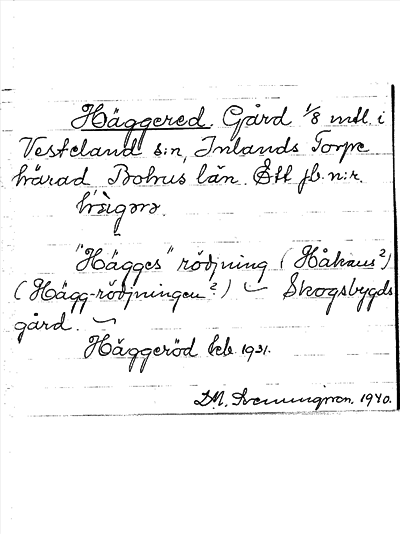 Häggered. Gård 1/8 mtl. i
Vesteland s:n, Inlands Torpe
härad, Bohus län. Ett jb. n:r.
"Hägges" rödjning (Håkans?)
(Hägg-rödjningen?) ~ Skogsbygds
gård. ~
Häggeröd Feb. 1931.
D.M. Svenningsson. 1940.